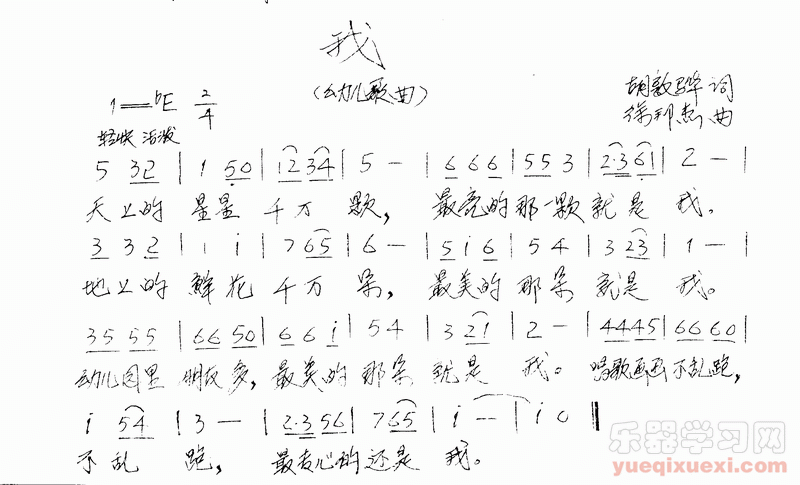 我
(幼儿歌曲)
1=bE 2/4
胡敦骅 词
徐邦杰 曲
轻快 活泼
5 32 | 1 50 | 12 34 | 5 - | 6 6 6 | 55 3 | 2·3 61 | 2 - |
天上的 星星 千万 颗, 最亮的那一颗就是 我。
3 3 2 | 1 i | 7 65 | 6 - | 5 i 6 | 5 4 | 3 23 | 1 - |
地上的 鲜花 千万 朵, 最美的 那朵 就是 我。
35 55 | 66 50 | 6 6 i | 54 | 3 21 | 2 - | 4445 | 6660 |
幼儿园里 朋友多, 最美的 那朵 就是 我。 唱歌画画不乱跑,
i 54 | 3 - | 2·3 56 | 765 | i - - | i 0 ‖
不乱 跑, 最开心的还是 我。
乐器学习网
yueqixuexi.com